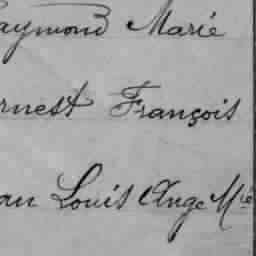 aymond Marie
rnest François
an Louis Ange Mie